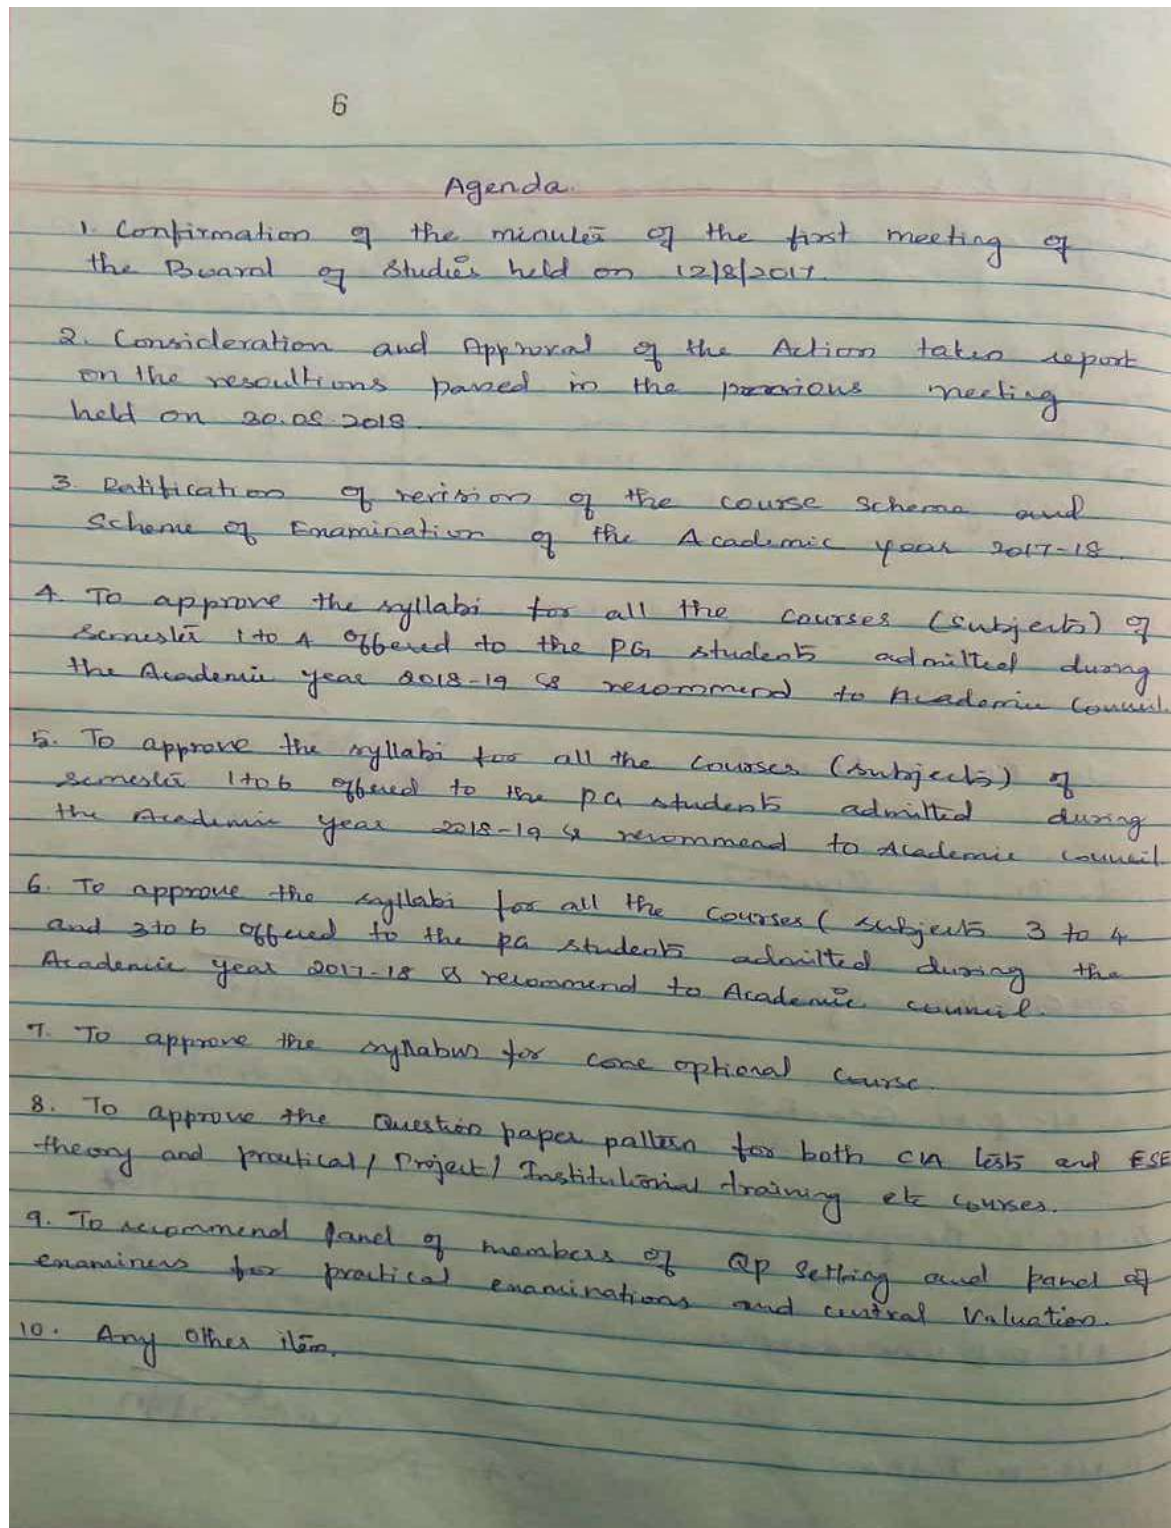 6
Agenda.
1. Confirmation of the minutes of the first meeting of
the Board of Studies held on 12/8/2017.
2. Consideration and Approval of the Action taken report
on the resoultions passed in the previous meeting
held on 30.08.2018.
3. Ratification of revision of the course scheme and
Scheme of Examination of the Academic year 2017-18.
4. To approve the syllabi for all the courses (subjects) of
semester 1 to 4 offered to the PG students admitted during
the Academic year 2018-19 & recommend to Academic Council.
5. To approve the syllabi for all the courses (subjects) of
semester 1 to 6 offered to the PG students admitted during
the Academic year 2018-19 & recommend to Academic council
6. To approve the syllabi for all the courses ( subjects 3 to 4
and 3 to 6 offered to the PG students admitted during the
Academic year 2017-18 & recommend to Academic council.
7. To approve the syllabus for core optional course.
8. To approve the Question paper pattern for both CIA tests and ESE
theory and practical / Project / Institutional training etc courses.
9. To recommend panel of members of QP Setting and panel of
examiners for practical examinations and central Valuation.
10. Any other item.